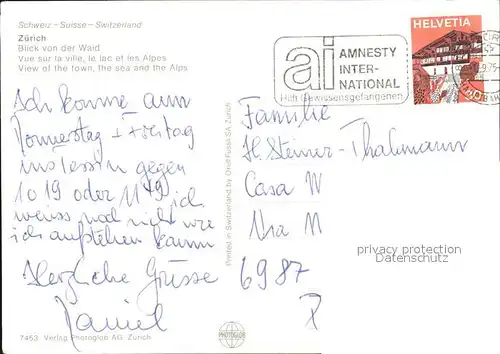 Schweiz – Suisse – Switzerland
Zürich
Blick von der Waid
Vue sur la ville, le lac et les Alpes
View of the town, the sea and the Alps
Ich komme am
Donnerstag + Freitag
gegen
10 19 oder 11 49 ich
weiss noch nicht wie
ich aufstehen kann
Herzliche Grüsse
Daniel
7453 Verlag Photoglob AG, Zürich
Printed in Switzerland by Orell Füssli SA, Zürich
PHOTOGLOB
ai AMNESTY
INTER-
NATIONAL
Hilft Gewissensgefangenen
HELVETIA
Familie
H. Steiner-Thalmann
Casa W
6987
privacy protection
Datenschutz